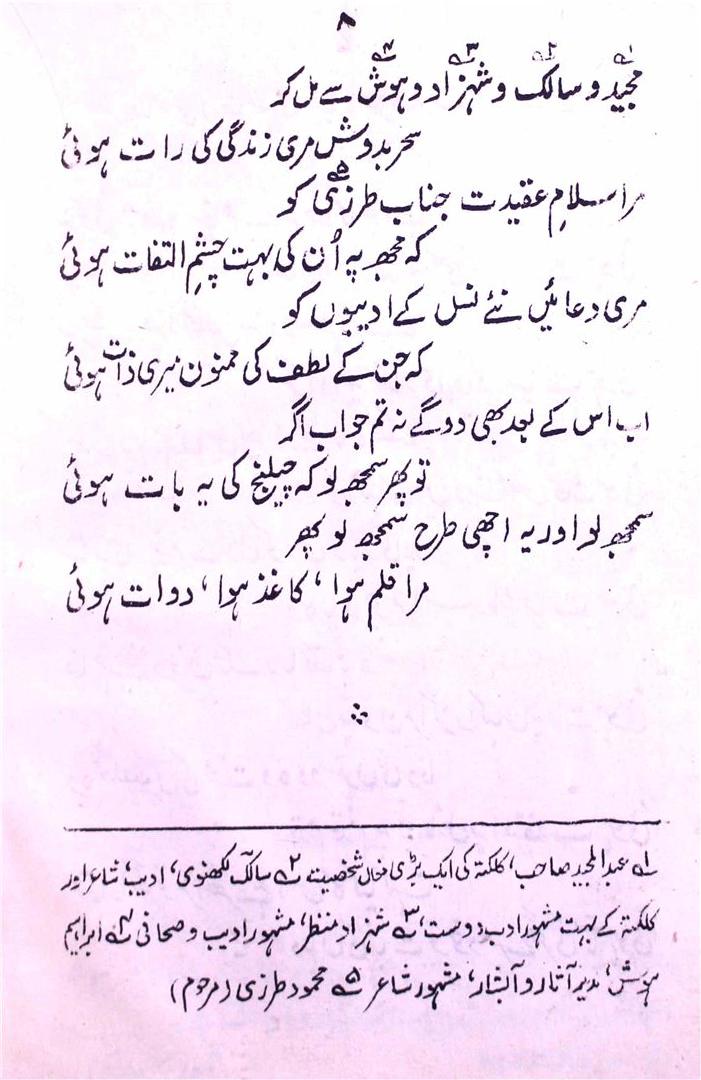 ۸
مجیدؔ۱ و سالکؔ۲ و شہزادؔ۳ و ہوشؔ۴ سے مل کر
سحر بدوش مری زندگی کی رات ہوئی
مرا سلامِ عقیدت جناب طرزیؔ۵ کو
کہ مجھ پہ اُن کی بہت چشمِ التفات ہوئی
مری دعائیں نئے نسل کے ادیبوں کو
کہ جن کے لطف کی ممنون میری ذات ہوئی
اب اس کے بعد بھی دوگے نہ تم جواب اگر
تو پھر سمجھ لو کہ چیلنج کی یہ بات ہوئی
سمجھ لو اور یہ اچھی طرح سمجھ لو پھر
مرا قلم ہوا، کاغذ ہوا، دوات ہوئی
۱؎ عبدالمجید صاحب، کلکتہ کی ایک بڑی فعال شخصیت ۲؎ سالکؔ لکھنوی، ادیب، شاعر اور
کلکتہ کے بہت مشہور ادب دوست، ۳؎ شہزاد منظر، مشہور ادیب و صحافی ۴؎ ابراہیم
ہوش، مدیر آثار و آبشار، مشہور شاعر ۵؎ محمود طرزی (مرحوم)